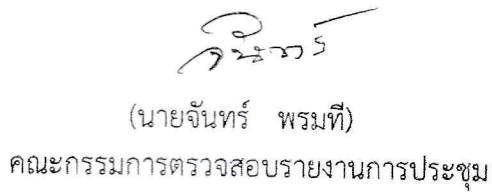 จันทร์
(นายจันทร์ พรมที)
คณะกรรมการตรวจสอบรายงานการประชุม